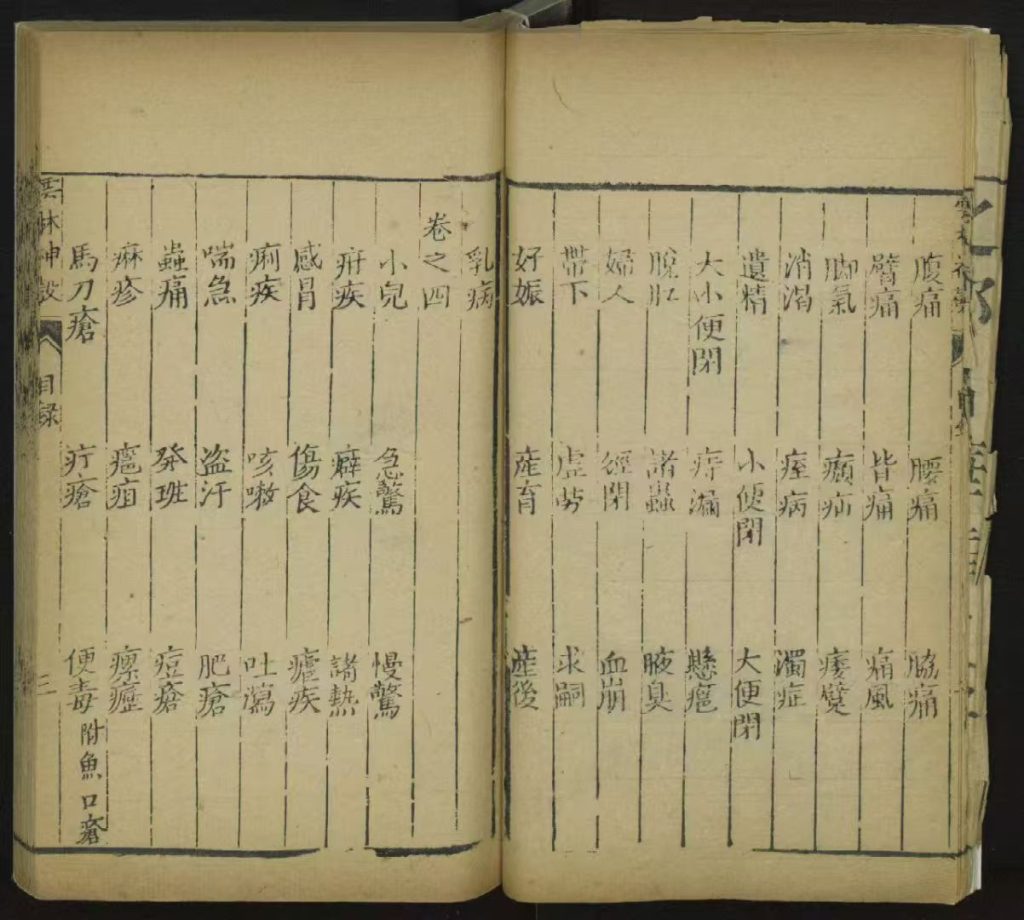 腹痛 腰痛 脇痛
臂痛 背痛 痛風
脚氣 㿗疝 痿躄
消渴 痓病 濁症
遺精 小便閉 大便閉
大小便閉 痔漏 懸癰
脫肛 諸蟲 腋臭
婦人 經閉 血崩
帶下 虛勞 求嗣
好娠 産育 産後
乳病
卷之四
小兒 急驚 慢驚
疳疾 癖疾 諸熱
感冒 傷食 瘧疾
痢疾 咳嗽 吐瀉
喘急 盗汗 肥瘡
蟲痛 發班 痘瘡
痳疹 癰疽 瘰癧
馬刀瘡 疔瘡 便毒附魚口瘡
雲林神彀 目録 三